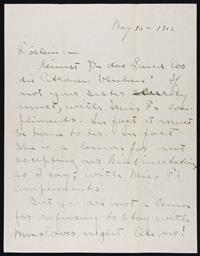 May 16 - 1912
Röslein: —
Kennst Du das Land wo
die Citronen blühen? If
not your sister surely
must, with Miss P's com-
pliments. In fact it must
be home to her. In fact
she is a lemon for not
accepting my kind invitation
as I say; with Miss P's
compliments.
But you are not a lemon
for refusing to stay with
last night. Oh no!